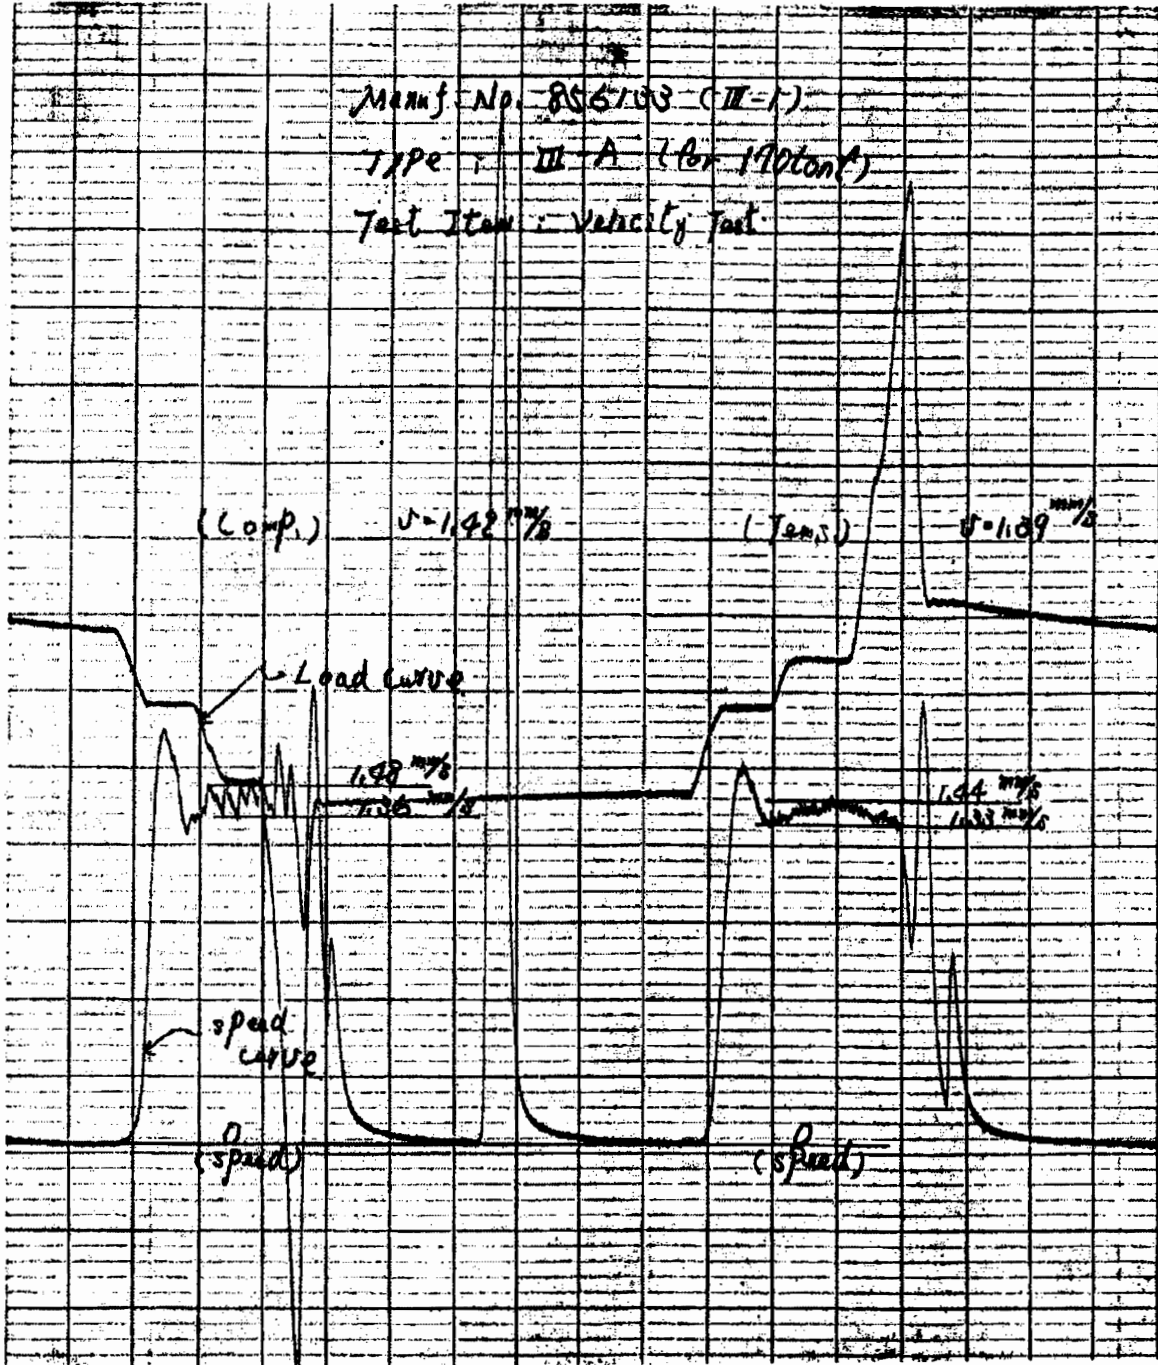 Manuf. No. 856133 (III-1)
Type : III-A (for 170tonf)
Test Item : Velocity Test
(Comp.) v=1.42 mm/s (Tens.) v=1.39 mm/s
Load curve
1.48 mm/s
1.36 mm/s
1.44 mm/s
1.33 mm/s
speed
curve
0
(speed)
0
(speed)